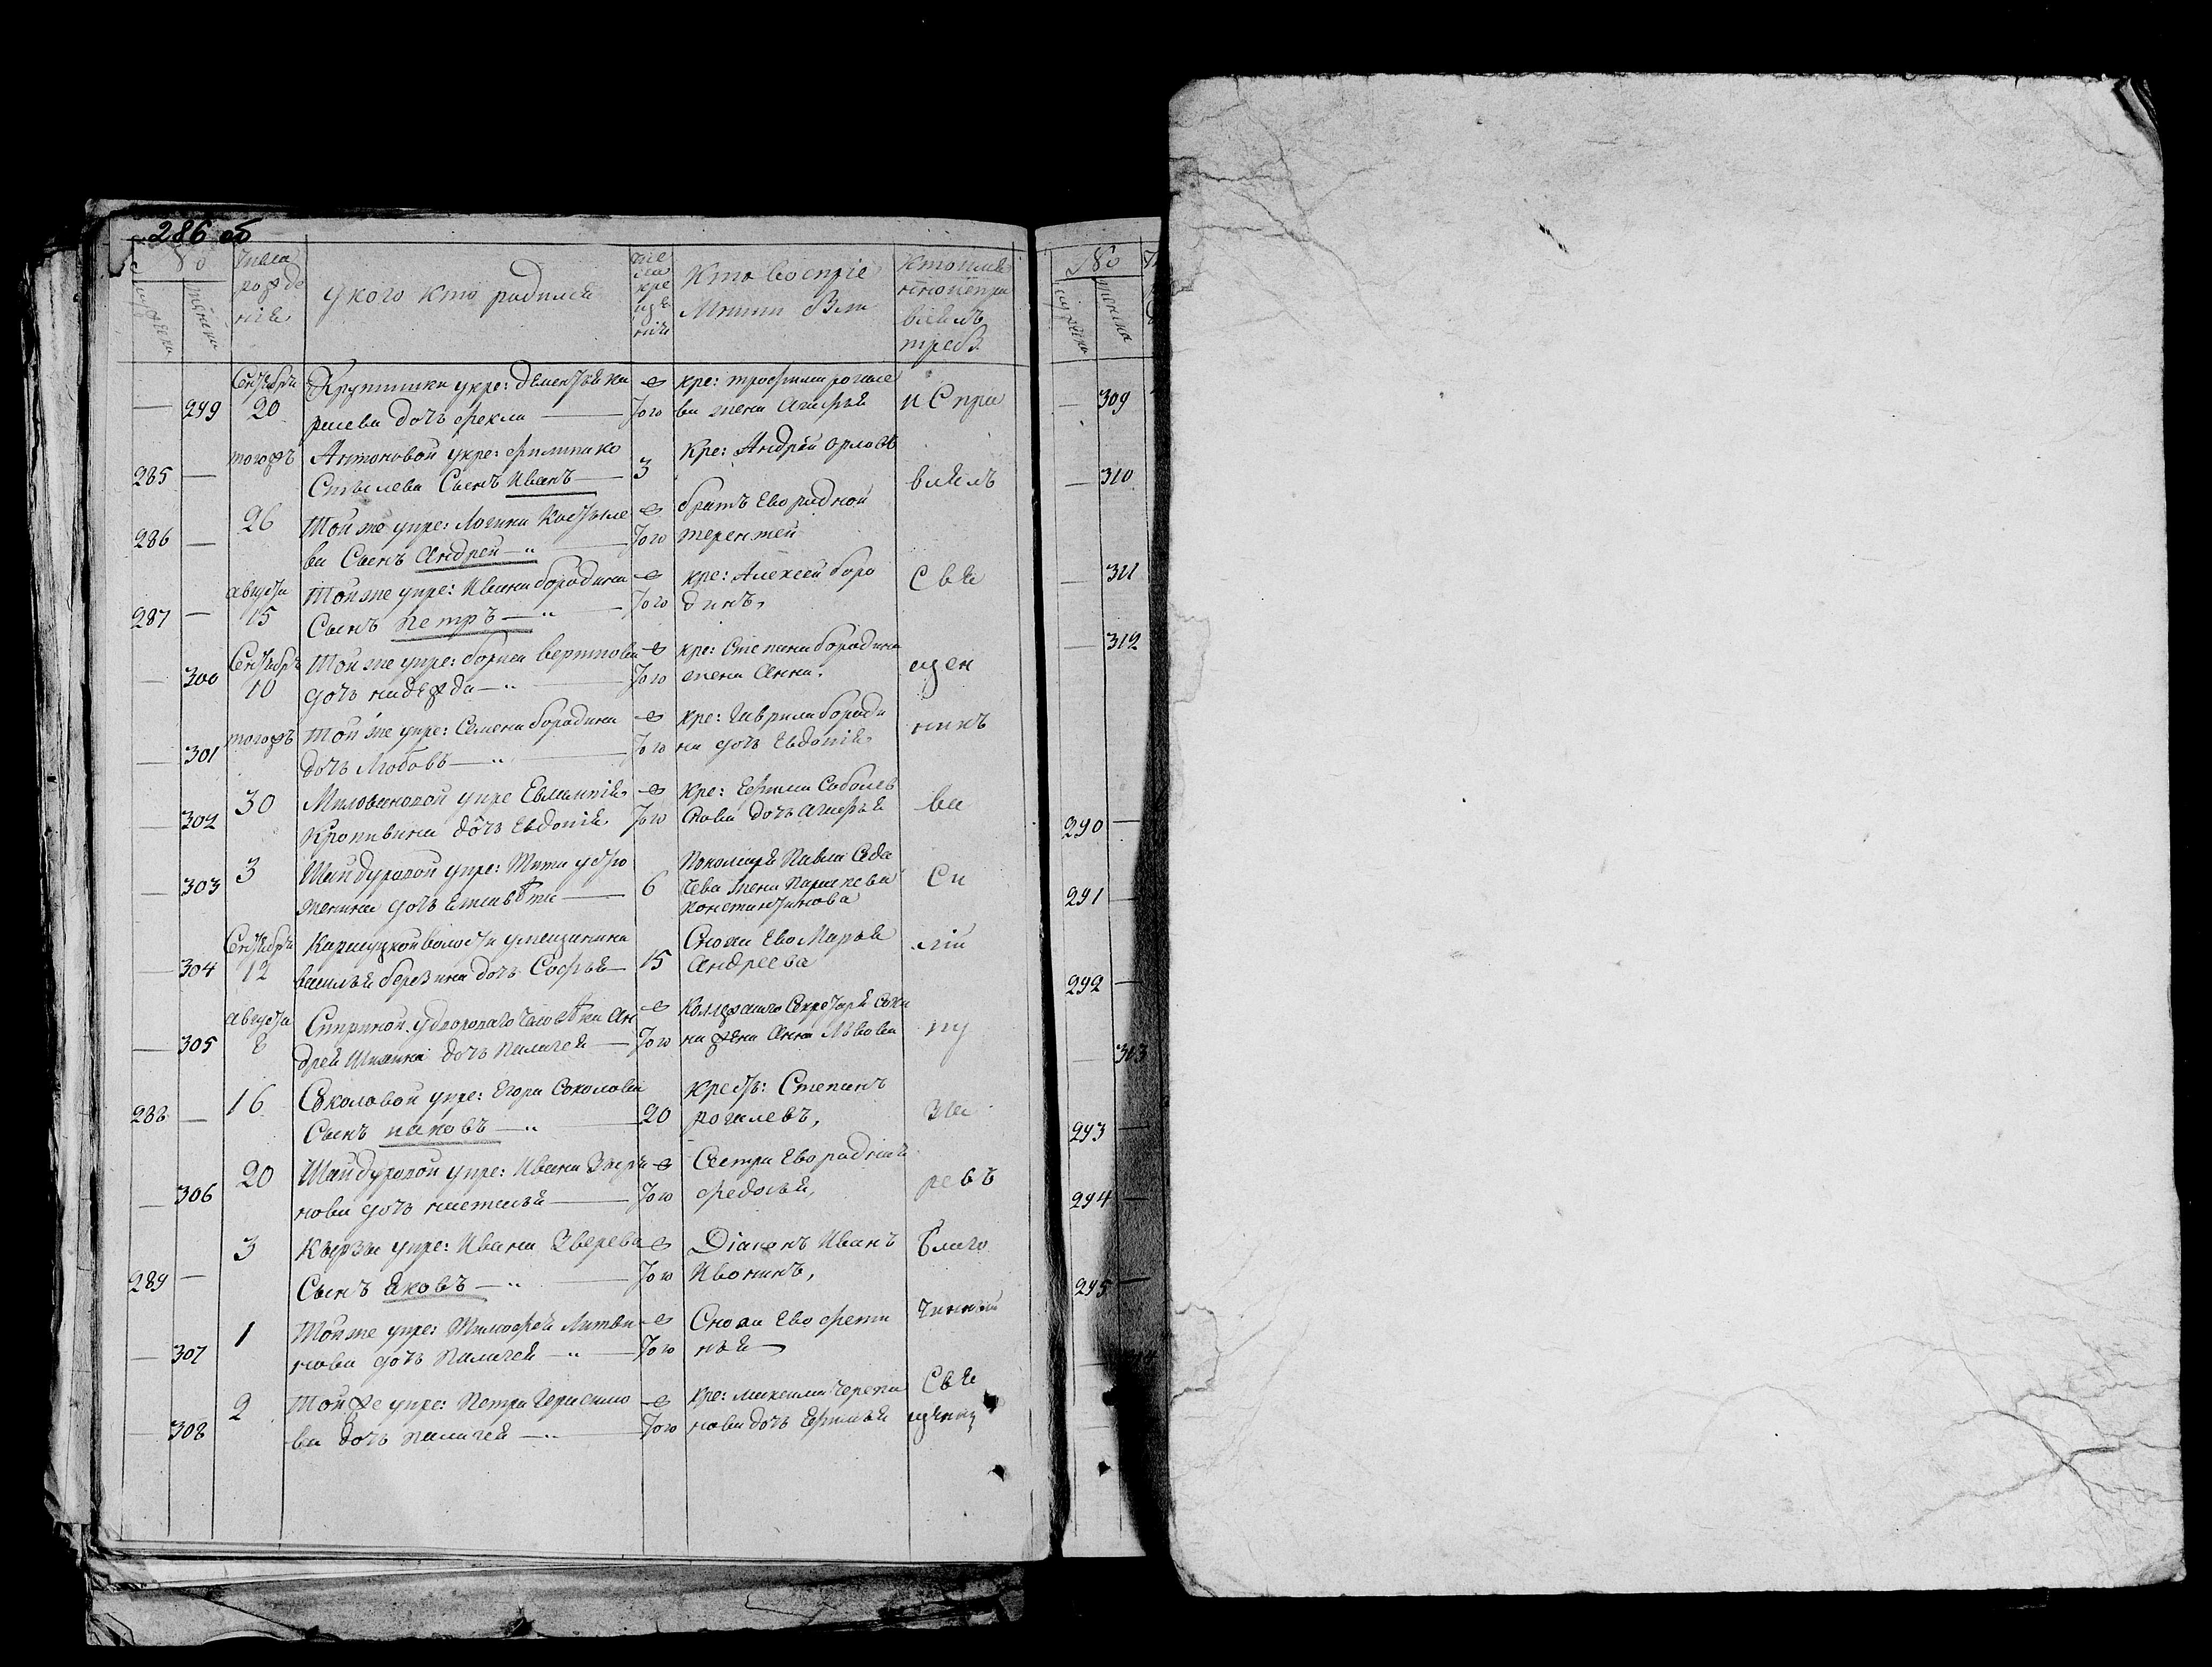 286 об
№
мужеска
женска
Числа
рожде
нія
у кого кто родился
чис
ла
кре
ще
нія
Кто воспріе
мники были
Кто имя
нно исправлялъ
треб.
— 299 Сентября 20 Крутишки у кре: Дементья Ка
ршева дочь Фекла — Того кре: Трофима Рогале
ва жена Агафья
и спра
285 — тогожъ Антоновой у кре: Филипа Ко
стылева Сынъ Иванъ — 3 Кре: Андрей Орловъ
влялъ
286 — 26 Той же у кре: Логина Костыле
ва Сынъ Андрей — Того братъ Ево родной
терентей
287 — августа 15 Той же у кре: Ивана бородина
Сынъ Петръ — Того кре: Алексей боро
динъ,
Свя
— 300 Сентября 10 Той же у кре: бориса
дочь надежда — Того кре: Степана бородина
жена Анна.
щен
— 301 тогожъ Той же у кре: Семена бородина
дочь Любовь — Того кре: Гаврила бороди
на дочь Евдокія
никъ
— 302 30 Миловановой у кре Евлампія
Кропивина дочь Евдокія Того кре: Ефима Соболев
скова дочь Агафья
Ва
— 303 3 Шайдуровой у кре: Тита устю
жанина дочь Елисавета — 6 Пономаря Павла Седа
чева жена Параскева
Константинова
Си
— 304 Сентября 12 волости у мещанина
василья березина дочь Софья — 15 Сноха Ево Марья
Андреева
лій
— 305 августа 8 Спириной у двороваго человека Ан
дрея дочь Палагея — Того Секретаря
жена Анна Львова
Пу
288 — 16 Соколовой у кре: Егора Соколова
Сынъ иаковъ — 20 Крестя: Степанъ
рогалевъ,
за
— 306 20 Шайдуровой у кре: Ивана
нова дочь настасья — Того Сестра Ево родная
федосья,
ревъ
289 — 3 Кырзы у кре: Ивана Зверева
Сынъ Яковъ — Того Діаконъ Иванъ
Ивонинъ,
благо
— 307 1 Той же у кре: Тимофея Литви
нова дочь Палагея — Того Сноха Ево фети
нья —
чинный
— 308 2 Той же у кре: Петра Герасимо
ва дочь палагея — Того кре: михаила Черепа
нова дочь Ефимья
Свя
щенни
№
мужеска
женска
— 309
— 310
— 311
— 312
290 —
291 —
292 —
— 313
293 —
294 —
295 —